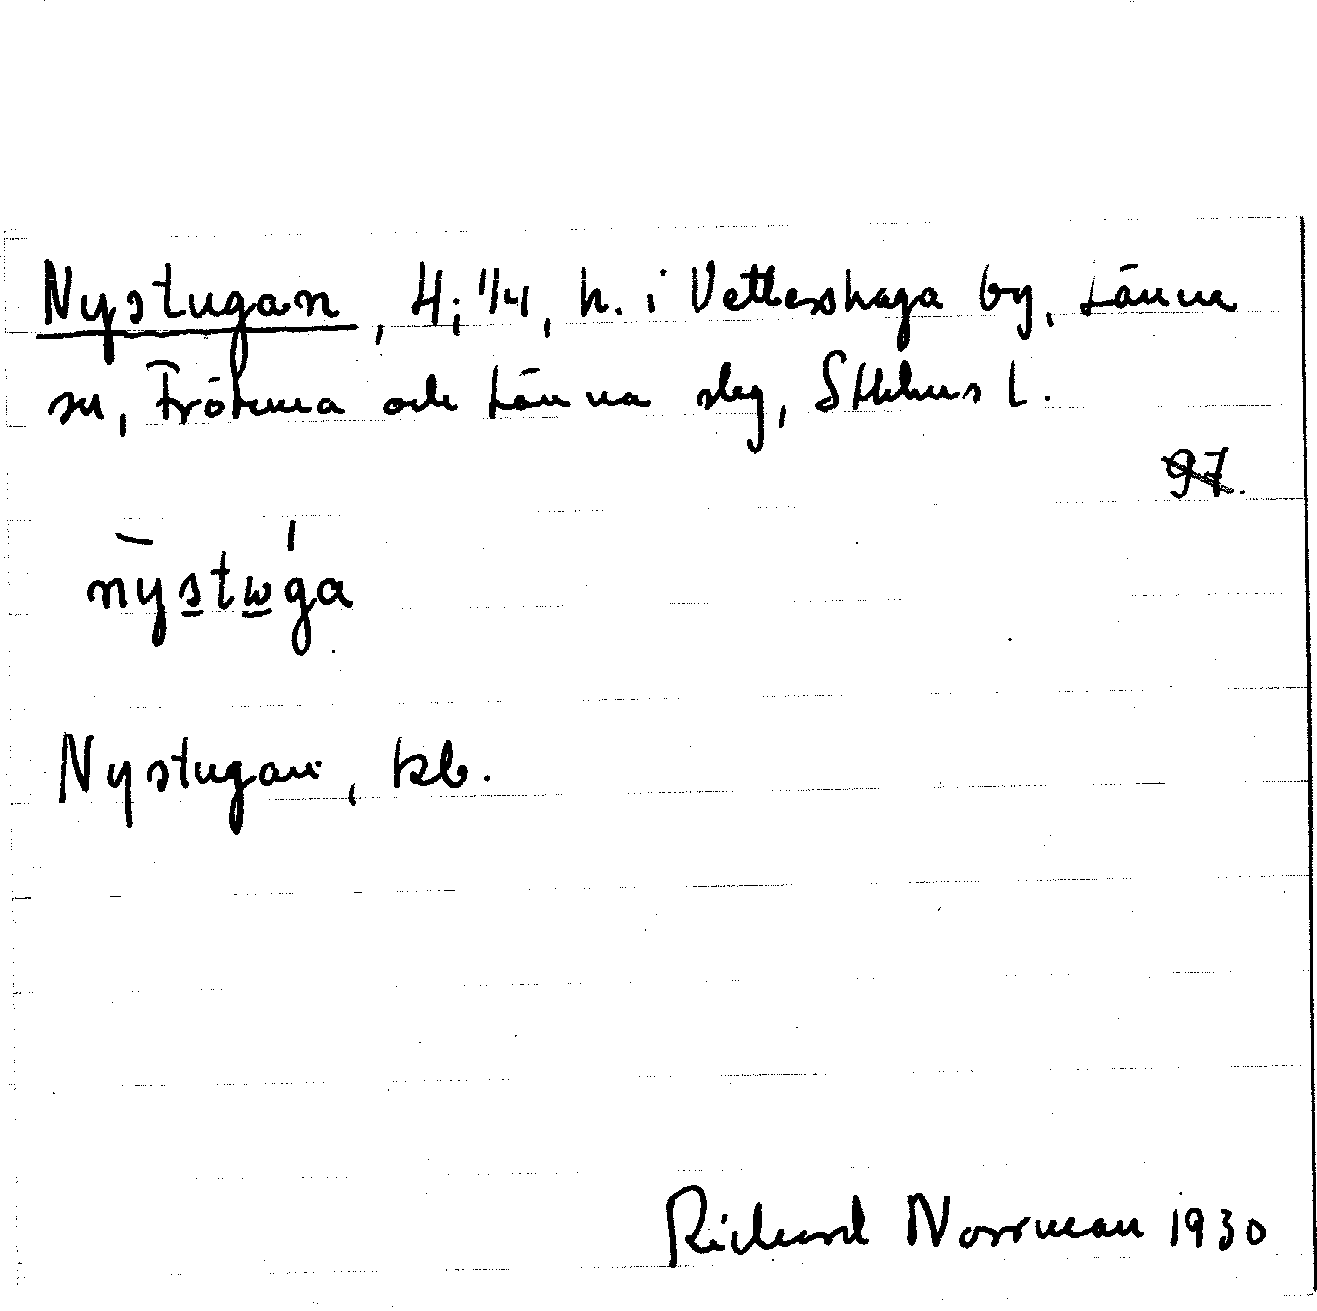 Nystugan, 4; 1/4, h. i Vettershaga by, Länna
sn, Frötuna och Länna slg, Sthlms l.
97.
nystωga
Nystugan, kb.
Richard Norrman 1930